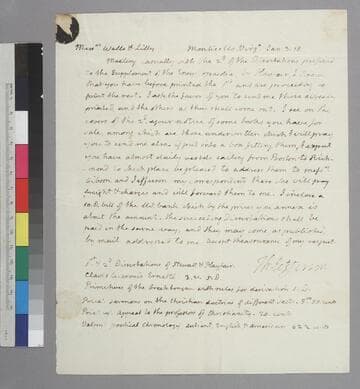 Mess.rs Wells & Lilly Monticello Virg.a Jan. 3. 18.
Meeting casually with the 2.d of the Dissertations prefixed
to the Supplement of the Encyclopaedia by Playfair I learn
that you have before printed the 1.st and are proceeding to
print the rest. I ask the favor of you to send me those already
printed and the others as they shall come out. I see on the
cover of the 2.d your notice of some books you have for
sale, among which are those underwritten which I will pray
you to send me also if put into a box fitting them, I expect
you have almost daily vessels sailing from Boston to Rich-
mond to which place be pleased to address them to mess.rs
Gibson and Jefferson my correspondents there who will pay
freight & charges and will forward them to me. I inclose a
bill of the US. bank which by the prices you annex is
about the amount. the succeeding Dissertations shall be
paid in the same way, and they may come as published
by mail addressed to me. accept the assurance of my respect
Th: Jefferson
1.st & 2.d Dissertations of Stewart & Playfair.
Clavis Ciceroniana Ernesti
Primitives of the Greek tongue with rules for derivation
Price's sermons on the Christian doctrine of different sects.
appeal to the professors of Christianity. 20 cents
practical chronology English & American 62 1/2 cents